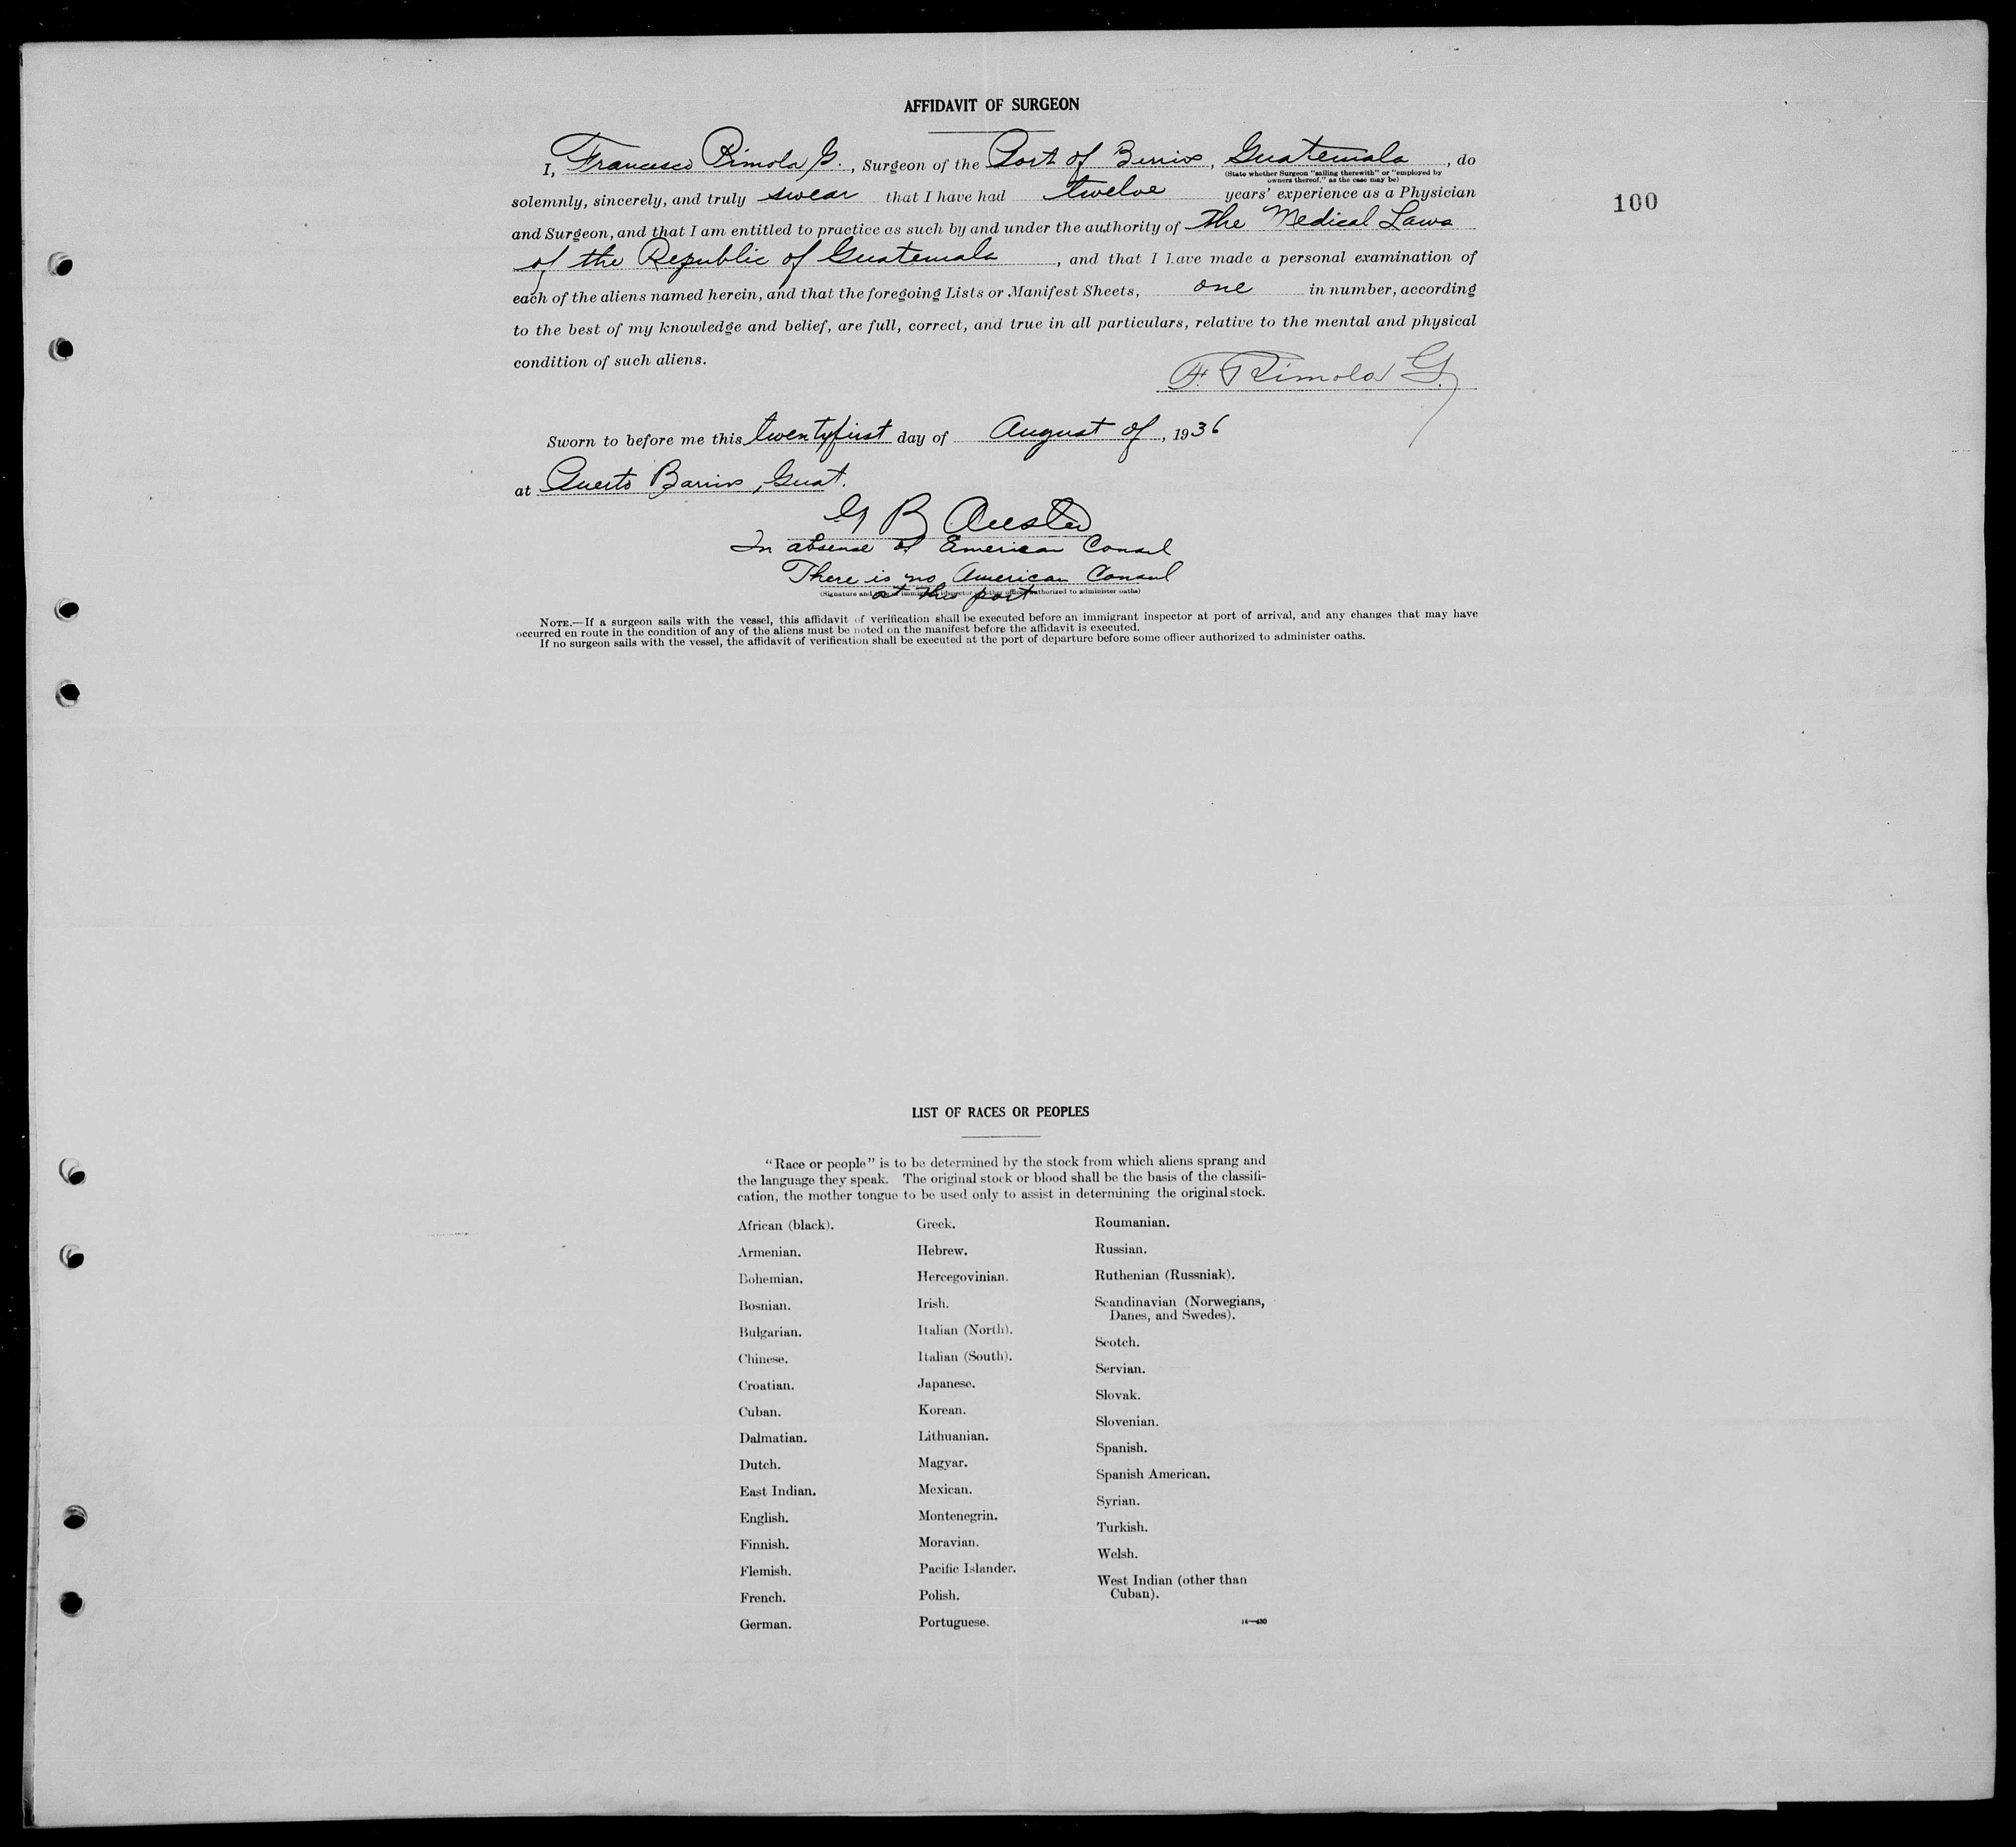 AFFIDAVIT OF SURGEON
I, Francisco Rimola G., Surgeon of the Port of Berrios, Guatemala, do
(State whether Surgeon "sailing therewith" or "employed by
owners thereof," as the case may be)
solemnly, sincerely, and truly swear that I have had twelve years' experience as a Physician
100
and Surgeon, and that I am entitled to practice as such by and under the authority of the Medical Laws
of the Republic of Guatemala, and that I have made a personal examination of
each of the aliens named herein, and that the foregoing Lists or Manifest Sheets, one in number, according
to the best of my knowledge and belief, are full, correct, and true in all particulars, relative to the mental and physical
condition of such aliens.
F. Rimola G.
Sworn to before me this twentyfirst day of August of, 1936
at Puerto Barrios, Guat.
G B
In absense of American Consul
There is no American Consul
at the port
(Signature and title of immigrant inspector or other officer authorized to administer oaths)
NOTE.—If a surgeon sails with the vessel, this affidavit of verification shall be executed before an immigrant inspector at port of arrival, and any changes that may have
occurred en route in the condition of any of the aliens must be noted on the manifest before the affidavit is executed.
If no surgeon sails with the vessel, the affidavit of verification shall be executed at the port of departure before some officer authorized to administer oaths.
LIST OF RACES OR PEOPLES
"Race or people" is to be determined by the stock from which aliens sprang and
the language they speak. The original stock or blood shall be the basis of the classifi-
cation, the mother tongue to be used only to assist in determining the original stock.
African (black).
Armenian.
Bohemian.
Bosnian.
Bulgarian.
Chinese.
Croatian.
Cuban.
Dalmatian.
Dutch.
East Indian.
English.
Finnish.
Flemish.
French.
German.
Greek.
Hebrew.
Hercegovinian.
Irish.
Italian (North).
Italian (South).
Japanese.
Korean.
Lithuanian.
Magyar.
Mexican.
Montenegrin.
Moravian.
Pacific Islander.
Polish.
Portuguese.
Roumanian.
Russian.
Ruthenian (Russniak).
Scandinavian (Norwegians,
Danes, and Swedes).
Scotch.
Servian.
Slovak.
Slovenian.
Spanish.
Spanish American.
Syrian.
Turkish.
Welsh.
West Indian (other than
Cuban).
14—430